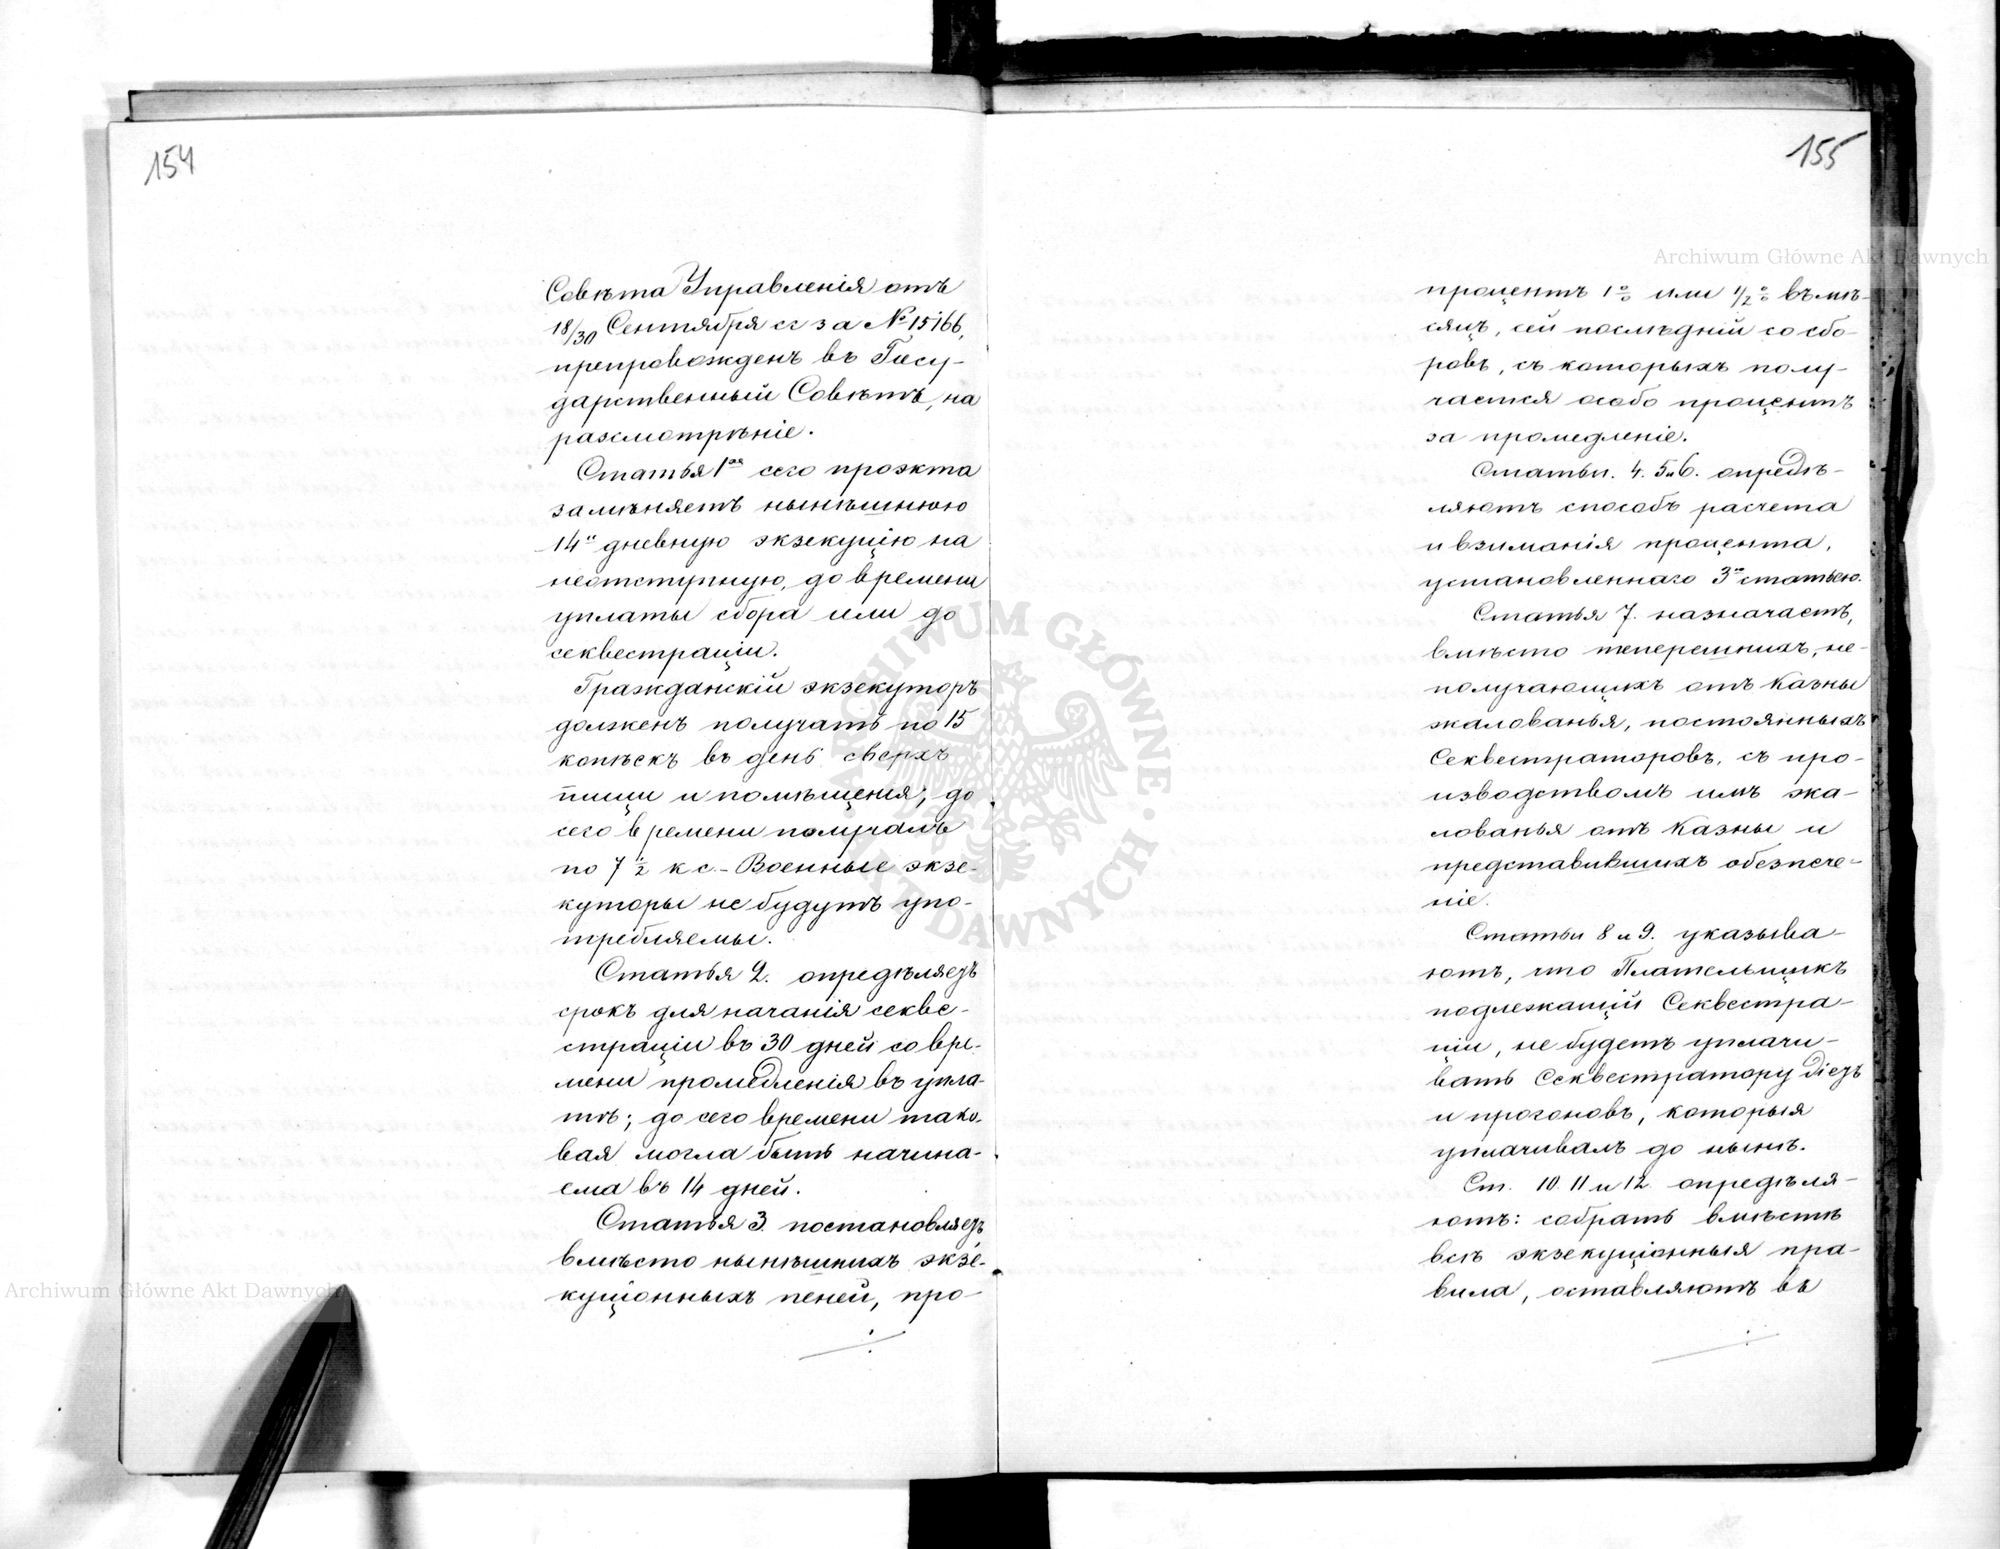 154
Совѣта Управленія отъ
18/30 Сентября сг за № 15166,
препровожденъ въ Госу-
дарственный Совѣтъ, на
разсмотрѣніе.
Статья 1ая сего проэкта
замѣняетъ нынѣшнюю
14и дневную экзекуцію на
неотступную, до времени
уплаты сбора или до
секвестраціи.
Гражданскій экзекуторъ
долженъ получать по 15
копѣекъ въ день сверхъ
пищи и помѣщенія, до
сего времени получалъ
по 7 1/2 к с.- Военные экзе-
куторы не будутъ упо-
требляемы.
Статья 2. опредѣляетъ
срокъ для начанія секве-
страціи въ 30 дней со вре-
мени промедленія въ упла-
тѣ; до сего времени тако-
вая могла быть начина-
ема въ 14 дней.
Статья 3. постановляетъ
вмѣсто нынѣшнихъ экзе-
куціонныхъ пеней, про-
155
процентъ 1% или 1/2% въ мѣ-
сяцъ, сей послѣдній со сбо-
ровъ, съ которыхъ полу-
чается особо процентъ
за промедленіе.
Статьи. 4. 5 и 6. опредѣ-
ляютъ способъ расчета
и взиманія процента,
установленнаго 3ю статьею.
Статья 7. назначаетъ,
вмѣсто теперешнихъ, не-
получающихъ отъ Казны
жалованья, постоянныхъ
Секвестраторовъ, съ про-
изводствомъ имъ жа-
лованья отъ Казны и
представившихъ обезпече-
ніе.
Статьи 8 и 9. указыва-
ютъ, что Плательщикъ
подлежащій Секвестра-
ціи, не будетъ уплачи-
вать Секвестратору діетъ
и прогоновъ, которыя
уплачивалъ до нынѣ.
Ст. 10. 11 и 12. опредѣля-
ютъ: собрать вмѣстѣ
всѣ экзекуціонныя пра-
вила, оставляютъ въ
Archiwum Główne Akt Dawnych
Archiwum Główne Akt Dawnych
ARCHIWUM GŁÓWNE AKT DAWNYCH